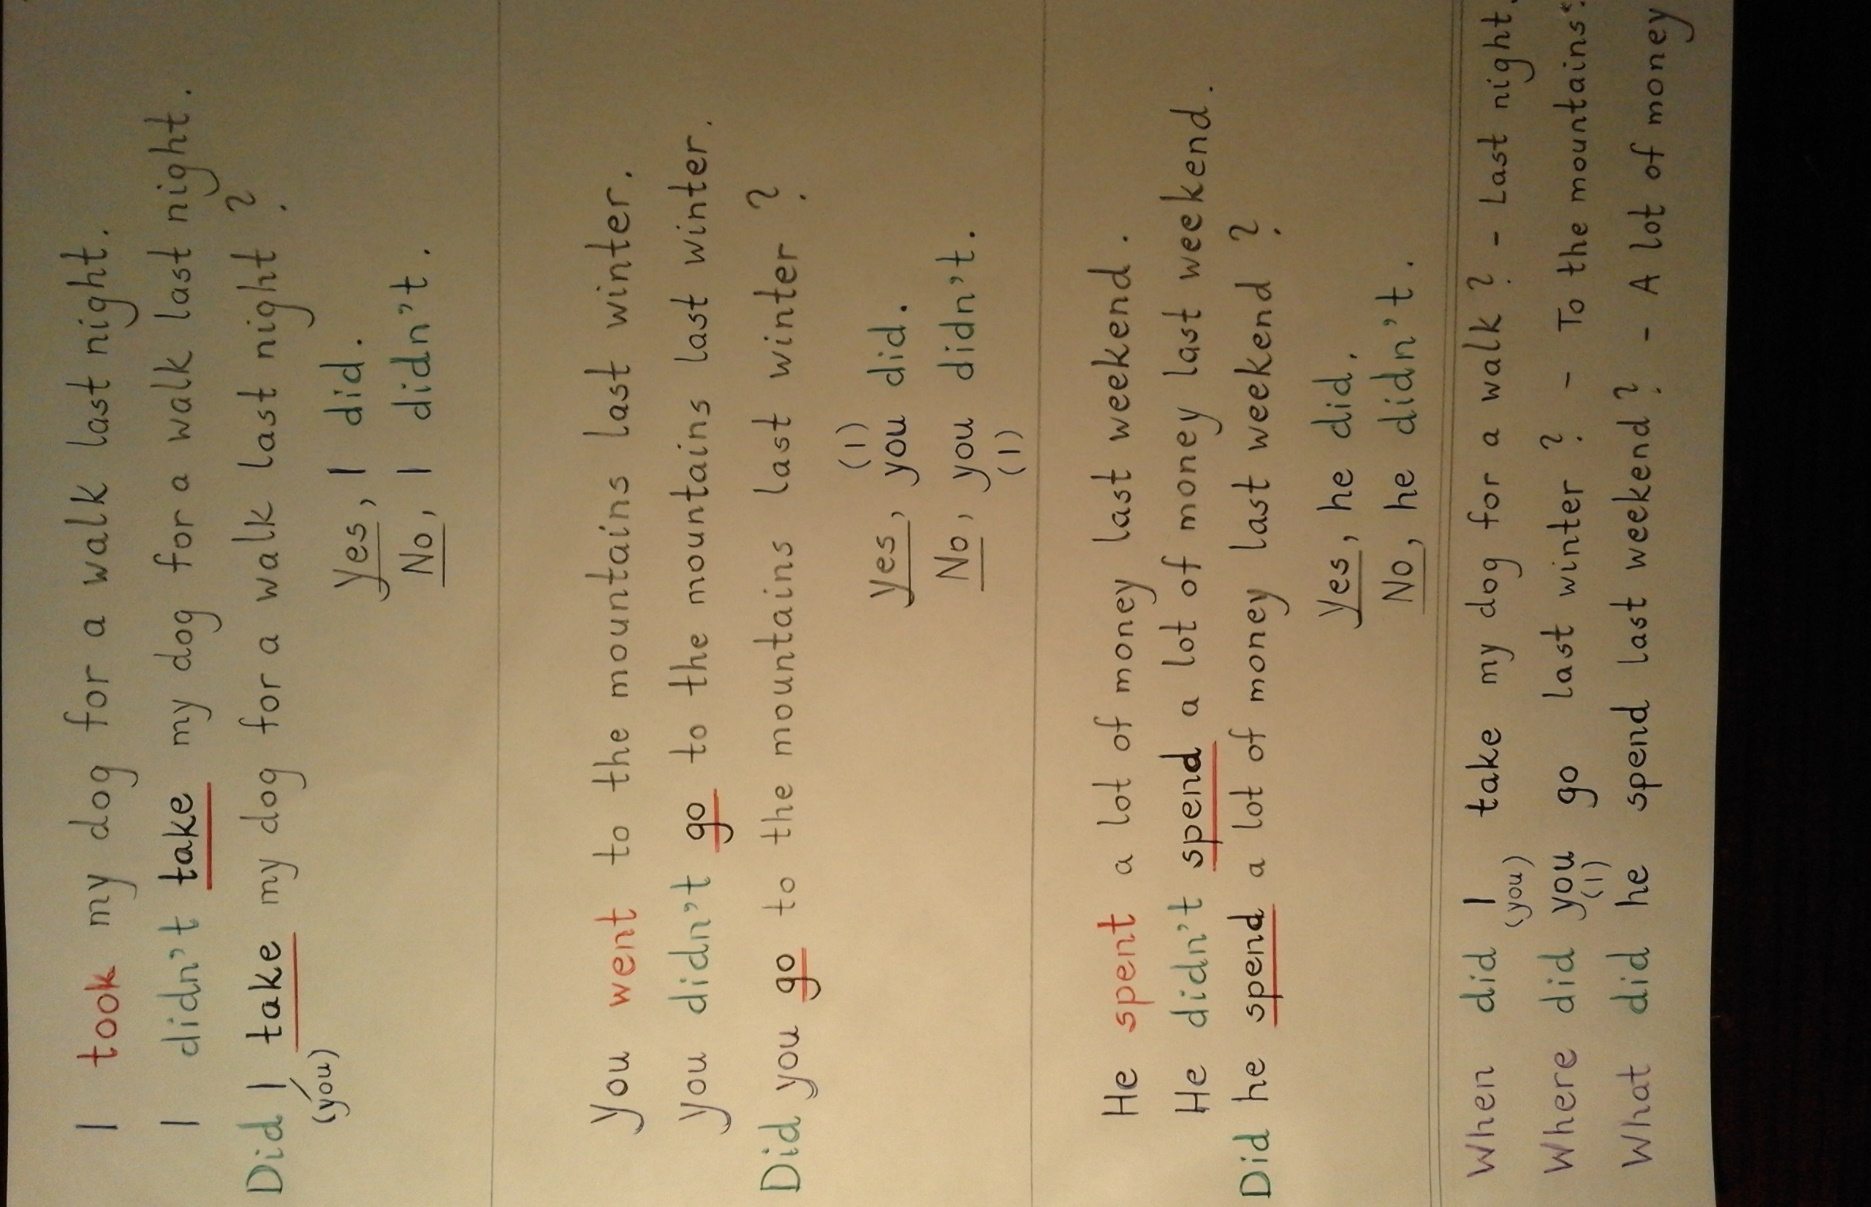 I took my dog for a walk last night.
I didn't take my dog for a walk last night.
Did I take my dog for a walk last night?
(you)
Yes, I did.
No, I didn't.
You went to the mountains last winter.
You didn't go to the mountains last winter.
Did you go to the mountains last winter?
(I)
Yes, you did.
No, you didn't.
(I)
He spent a lot of money last weekend.
He didn't spend a lot of money last weekend.
Did he spend a lot of money last weekend?
Yes, he did.
No, he didn't.
When did I take my dog for a walk? - Last night.
(you)
Where did you go last winter? - To the mountains.
(I)
What did he spend last weekend? - A lot of money